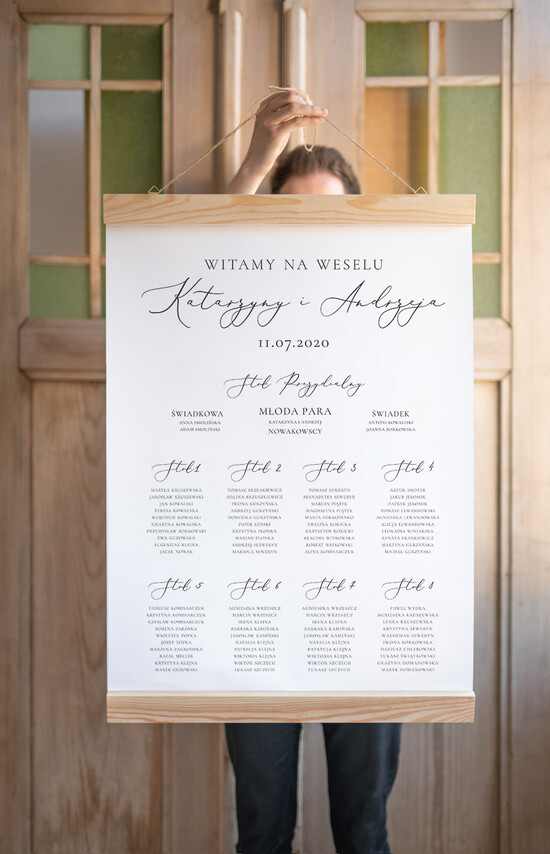 WITAMY NA WESELU
Katarzyny i Andrzeja
11.07.2020
Stół Prezydialny
ŚWIADKOWA
ANNA SMOLIŃSKI
ADAM SMOLIŃSKI
MŁODA PARA
KATARZYNA I ANDRZEJ
NOWAKOWSCY
ŚWIADEK
ANTONI KOWALSKI
JOANNA BORKOWSKA
Stół 1
MARTYA KRUSZEWSKA
JAROSŁAW KRUSZEWSKI
JAN KOWALSKI
TERESA KOWALSKA
WOJCIECH KOWALSKI
GRAŻYNA KOWALSKA
PRZEMYSŁAW BORKOWSKI
EWA GUZOWSKA
EUGENIUSZ KLEJNA
JACEK NOWAK
Stół 2
TOMASZ BRZUSKIEWICZ
HALINA BRZUSKIEWICZ
IWONA GURZYŃSKA
ANDRZEJ GURZYŃSKI
DOMINIKA GURZYŃSKA
PIOTR
KRYSTYNA
MARIAN
ANDRZEJ SEWERYN
MARIOLA SEWERYN
Stół 3
TOMASZ SEWERYN
BERNADETTA SEWERYN
MARCIN PIĄTEK
MAGDALENA PIĄTEK
MARTA
EWELINA KOSICKA
KRZYSZTOF KOSICKI
WITKOWSKA
ROBERT WITKOWSKI
ALINA KOMISARCZUK
Stół 4
ARTUR SHOTER
JAKUB JEROMIK
PATRYK JEROMIK
TOMASZ LEWANDOWSKI
AGNIESZKA LEWANDOWSKA
ALICJA LEWANDOWSKA
LEOKADIA WINIARSKA
RENATA FRANKIEWICZ
MARTYNA GURZYŃSKA
MICHAŁ GURZYŃSKI
Stół 5
TADEUSZ KOMISARCZUK
KRYSTYNA KOMISARCZUK
CZESŁAW KOMISARCZUK
BOŻENA PAŹDZIKA
WIOLETTA TOPKA
JÓZEF TOPKA
MARZENA ZAGRODZKA
RAFAŁ MELLER
KRYSTYNA KLEJNA
MAREK GUROWSKI
Stół 6
AGNIESZKA WRZESZCZ
MARCIN WRZESZCZ
IRENA KLEJNA
BARBARA KAMIŃSKA
JAROSŁAW KAMIŃSKI
NATALIA KLEJNA
PATRYCJA KLEJNA
WIKTORIA KLEJNA
WIKTOR SZCZECH
ŁUKASZ SZCZECH
Stół 7
AGNIESZKA WRZESZCZ
MARCIN WRZESZCZ
IRENA KLEJNA
BARBARA KAMIŃSKA
JAROSŁAW KAMIŃSKI
NATALIA KLEJNA
PATRYCJA KLEJNA
WIKTORIA KLEJNA
WIKTOR SZCZECH
ŁUKASZ SZCZECH
Stół 8
PAWEŁ WYDRA
AGNIESZKA KRUSZEWSKA
LENKA KRUSZEWSKA
KRYSTYNA SEWERYN
WALDEMAR SEWERYN
IWONA BORKOWSKA
DARIUSZ CHLEBOWSKI
ŁUKASZ ŚWIĄTKOWSKI
GRAŻYNA DOMANOWSKA
MAREK DOMAŃSKI